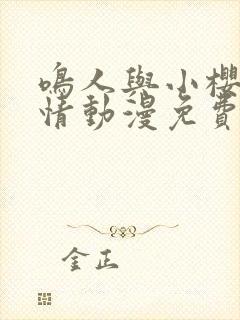 鳴人與小櫻
情動漫免費
金正